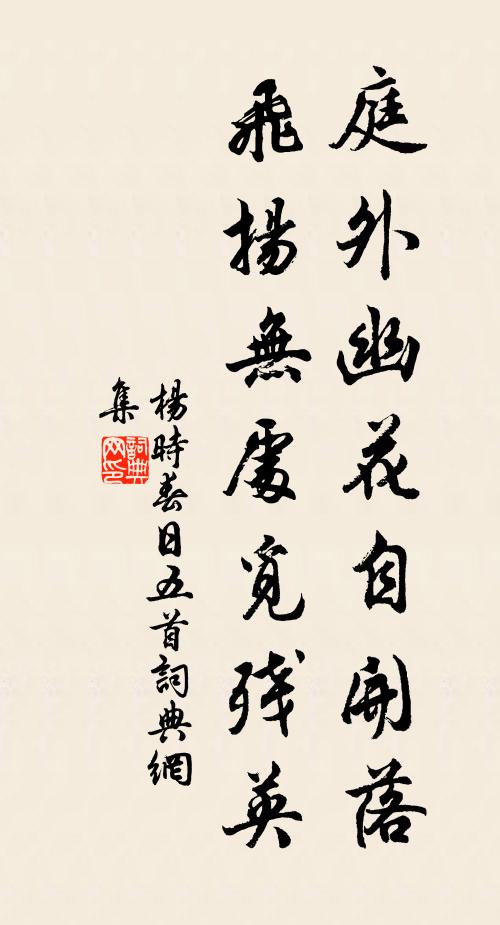 庭外幽花自開落
飛揚無處覓殘英
楊時春日五首詞典網
集
詞典
网印